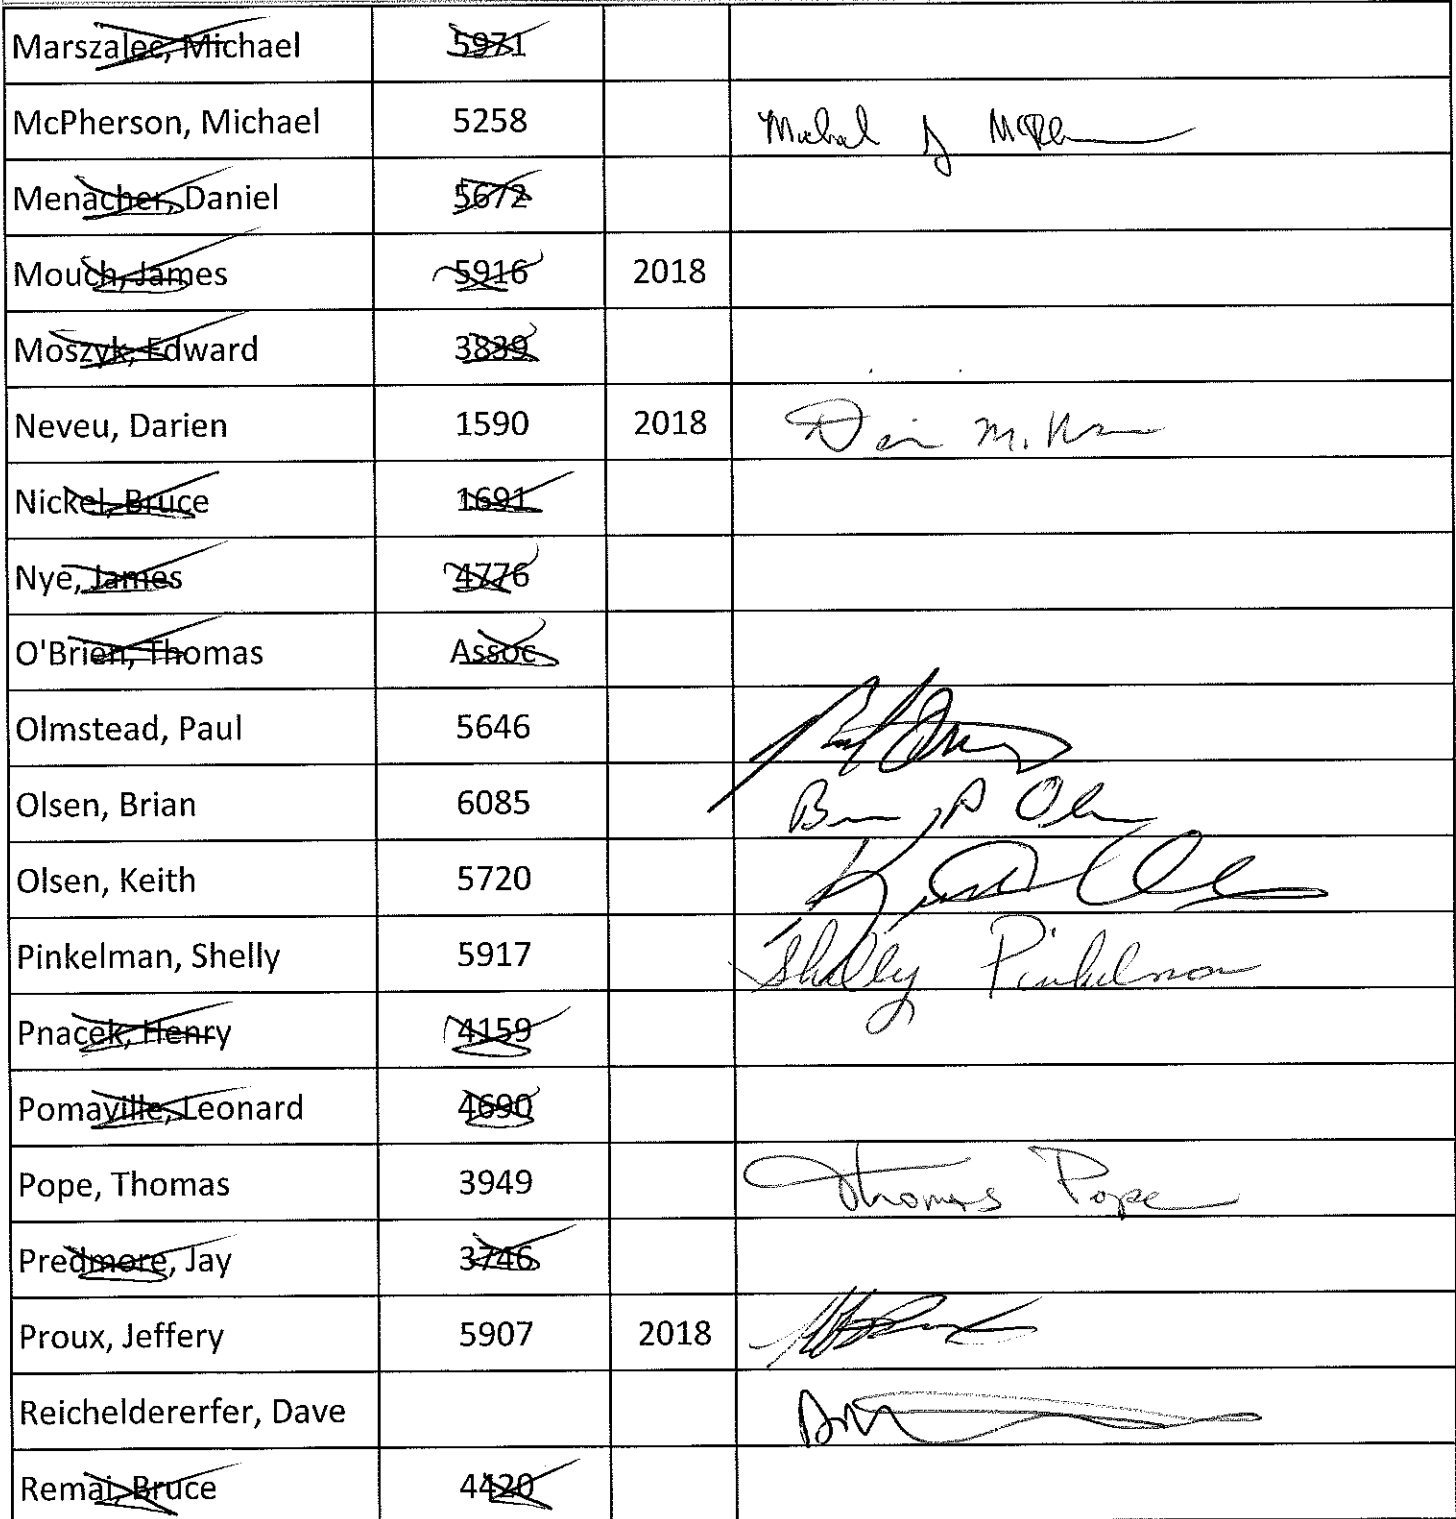 Marszalec, Michael 5971
McPherson, Michael 5258
Menacher, Daniel 5672
Mouch, James 5916 2018
Moszyk, Edward 3839
Neveu, Darien 1590 2018
Nickel, Bruce 1691
Nye, James 4776
O'Brien, Thomas Assoc
Olmstead, Paul 5646
Olsen, Brian 6085
Olsen, Keith 5720
Pinkelman, Shelly 5917 Shelly Pinkelman
Pnacek, Henry 4159
Pomaville, Leonard 4690
Pope, Thomas 3949 Thomas Pope
Predmore, Jay 3746
Proux, Jeffery 5907 2018
Reicheldererfer, Dave
Remai, Bruce 4420